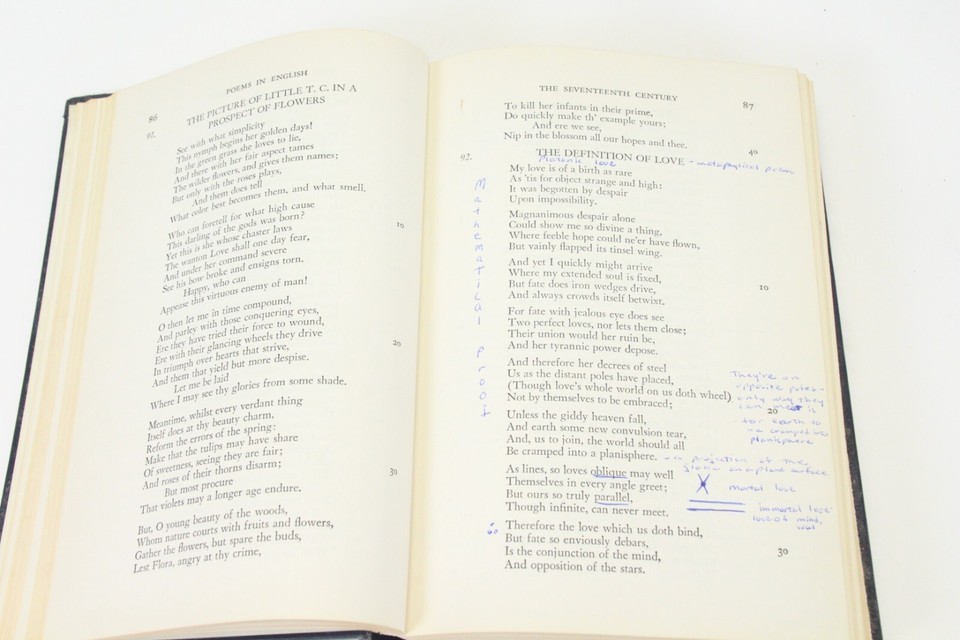 86
POEMS IN ENGLISH
91.
THE PICTURE OF LITTLE T. C. IN A
PROSPECT OF FLOWERS
See with what simplicity
This nymph begins her golden days!
In the green grass she loves to lie,
And there with her fair aspect tames
The wilder flowers, and gives them names;
But only with the roses plays,
And them does tell
What color best becomes them, and what smell.
Who can foretell for what high cause
This darling of the gods was born?
10
Yet this is she whose chaster laws
The wanton Love shall one day fear,
And under her command severe
See his bow broke and ensigns torn.
Happy, who can
Appease this virtuous enemy of man!
O then let me in time compound,
And parley with those conquering eyes,
Ere they have tried their force to wound,
Ere with their glancing wheels they drive
20
In triumph over hearts that strive,
And them that yield but more despise.
Let me be laid
Where I may see thy glories from some shade.
Meantime, whilst every verdant thing
Itself does at thy beauty charm,
Reform the errors of the spring:
Make that the tulips may have share
Of sweetness, seeing they are fair;
And roses of their thorns disarm;
30
But most procure
That violets may a longer age endure.
But, O young beauty of the woods,
Whom nature courts with fruits and flowers,
Gather the flowers, but spare the buds,
Lest Flora, angry at thy crime,
THE SEVENTEENTH CENTURY
87
To kill her infants in their prime,
Do quickly make th' example yours;
And ere we see,
Nip in the blossom all our hopes and thee.
40
92.
THE DEFINITION OF LOVE - metaphysical poem
Platonic love
My love is of a birth as rare
As 'tis for object strange and high:
It was begotten by despair
Upon impossibility.
Magnanimous despair alone
Could show me so divine a thing,
Where feeble hope could ne'er have flown,
But vainly flapped its tinsel wing.
And yet I quickly might arrive
Where my extended soul is fixed,
But fate does iron wedges drive,
10
And always crowds itself betwixt.
For fate with jealous eye does see
Two perfect loves, nor lets them close;
Their union would her ruin be,
And her tyrannic power depose.
And therefore her decrees of steel
Us as the distant poles have placed,
(Though love's whole world on us doth wheel)
Not by themselves to be embraced;
20
Unless the giddy heaven fall,
And earth some new convulsion tear,
And, us to join, the world should all
Be cramped into a planisphere.
As lines, so loves oblique may well
Themselves in every angle greet;
But ours so truly parallel,
Though infinite, can never meet.
Therefore the love which us doth bind,
But fate so enviously debars,
30
Is the conjunction of the mind,
And opposition of the stars.
Mathematical Proof
They're on
opposite poles -
only way they
can meet is
for earth to
be cramped into
planisphere
- a projection of the
globe on a plane surface
mortal love
immortal love
love of mind,